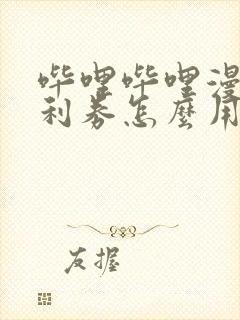 哔哩哔哩漫
利券怎麽用
友握